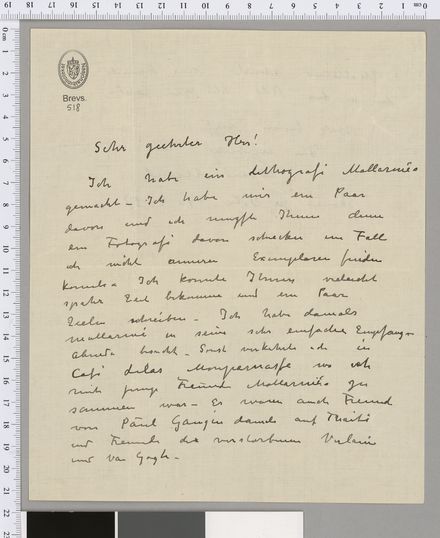 Brevs.
518
Sehr geehrter Herr!
Ich habe ein Lithografi Mallarmés
gemacht – Ich habe nur ein Paar
davon und ich
ein Fotografi davon schicken im Fall
ich nicht anneren Exemplaren finden
konnte. Ich konnte Ihnen vieleicht
später Zeit bekomme und ein Paar
Zeelen schreiben. – Ich habe damals
Mallarmé in seine sehr einfache Empfangs-
abende – Sonst verkehrte ich in
Café delas wo ich
mit junge Freunde Mallarmés zu
sammen war – Es waren auch Freund
von Paul Gaugin damals auf Thaiti
und Freunde des verstorbenen Verlain
und Van Gogh –